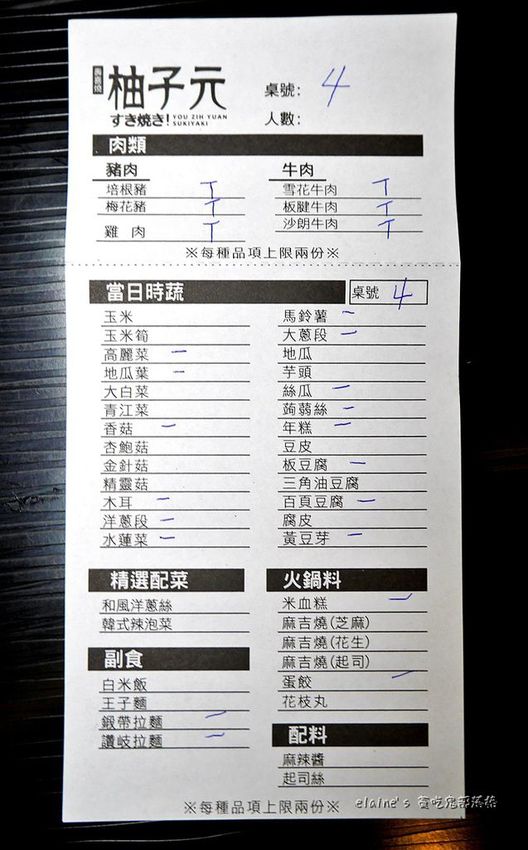 壽喜燒 柚子元
すき焼き! YOU ZIH YUAN SUKIYAKI
桌號: 4
人數:
肉類
豬肉 牛肉
培根豬 T 雪花牛肉 T
梅花豬 T 板腱牛肉 T
雞 肉 T 沙朗牛肉 T
※每種品項上限兩份※
當日時蔬 桌號 4
玉米 馬鈴薯 一
玉米筍 大蔥段 一
高麗菜 一 地瓜
地瓜葉 一 芋頭
大白菜 絲瓜 一
青江菜 蒟蒻絲 一
香菇 一 年糕 一
杏鮑菇 豆皮
金針菇 板豆腐 一
精靈菇 三角油豆腐
木耳 一 百頁豆腐 一
洋蔥段 一 腐皮
水蓮菜 一 黃豆芽 一
精選配菜 火鍋料
和風洋蔥絲 米血糕 一
韓式辣泡菜 麻吉燒(芝麻)
麻吉燒(花生)
副食 麻吉燒(起司)
白米飯 蛋餃 一
王子麵 花枝丸
鍛帶拉麵 一
讚岐拉麵 一 配料
麻辣醬
起司絲
※每種品項上限兩份※
elaine's 賀吃鬼部落格